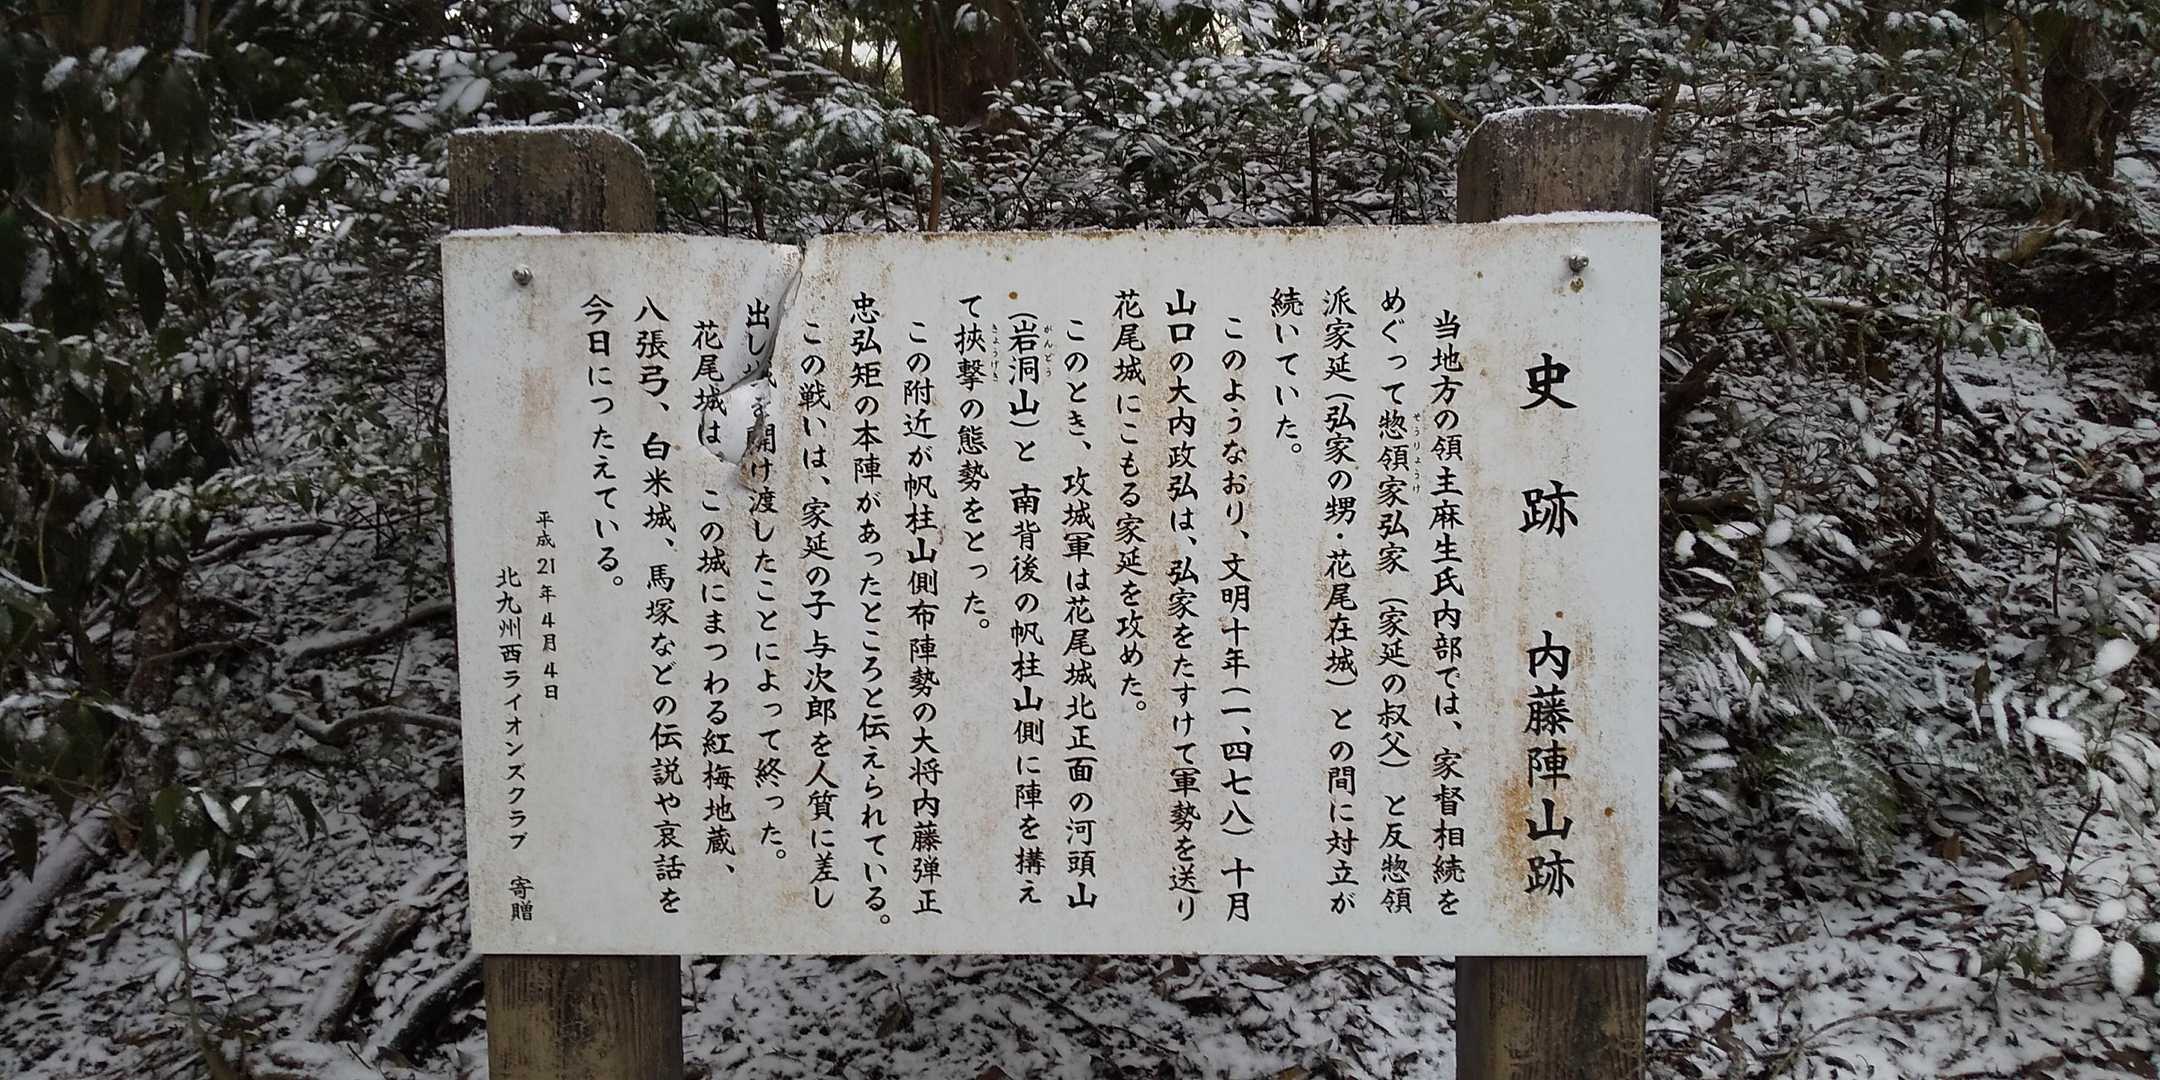 史跡　内藤陣山跡
当地方の領主麻生氏内部では、家督相続を
めぐって惣領家弘家（家延の叔父）と反惣領
そうりょうけ
派家延（弘家の甥・花尾在城）との間に対立が
続いていた。
このようなおり、文明十年（一、四七八）十月
山口の大内政弘は、弘家をたすけて軍勢を送り
花尾城にこもる家延を攻めた。
このとき、攻城軍は花尾城北正面の河頭山
（岩洞山）と南背後の帆柱山側に陣を構え
がんどう
て挟撃の態勢をとった。
きょうげき
この附近が帆柱山側布陣勢の大将内藤弾正
忠弘矩の本陣があったところと伝えられている。
この戦いは、家延の子与次郎を人質に差し
出し城を開け渡したことによって終った。
花尾城は　この城にまつわる紅梅地蔵、
八張弓、白米城、馬塚などの伝説や哀話を
今日につたえている。
平成21年4月4日
北九州西ライオンズクラブ　寄贈